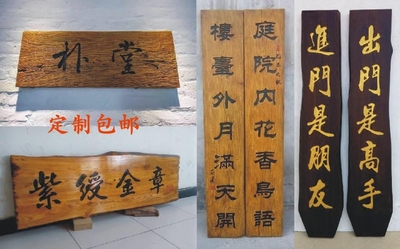 朴堂
定制包邮
紫綬金章
庭院内花香鳥語
樓臺外月滿天開
出門是高手
進門是朋友